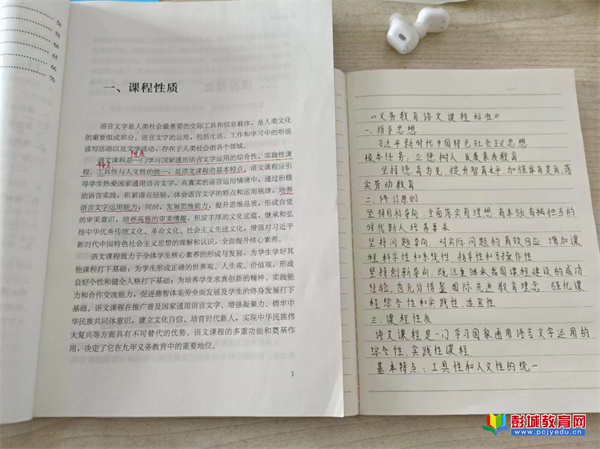 一、课程性质
语言文字是人类社会最重要的交际工具和信息载体,是人类文化
的重要组成部分。语言文字的运用,包括生活、工作和学习中的听说
读写活动以及文学活动,存在于人类社会的各个领域。
语文课程是一门学习国家通用语言文字运用的综合性、实践性课
程。工具性与人文性的统一,是语文课程的基本特点。语文课程应引
导学生热爱国家通用语言文字,在真实的语言运用情境中,通过积极
的语言实践,积累语言经验,体会语言文字的特点和运用规律,培养
语言文字运用能力;同时,发展思维能力,提升思维品质,形成自觉
的审美意识,培养高雅的审美情趣,积淀丰厚的文化底蕴,继承和弘
扬中华优秀传统文化、革命文化、社会主义先进文化,增强对习近平
新时代中国特色社会主义思想的理解和认识,全面提升核心素养。
语文课程致力于全体学生核心素养的形成与发展,为学生学好其
他课程打下基础;为学生形成正确的世界观、人生观、价值观,形成
良好个性和健全人格打下基础;为培养学生求真创新的精神、实践能
力和合作交流能力,促进德智体美劳全面发展及学生的终身发展打下
基础。语文课程在推广普及国家通用语言文字、增强凝聚力、铸牢中
华民族共同体意识,建立文化自信,培育时代新人,实现中华民族伟
大复兴等方面具有不可替代的优势。语文课程的多重功能和奠基作
用,决定了它在九年义务教育中的重要地位。
1
《义务教育语文课程标准》
一、指导思想
习近平新时代中国特色社会主义思想
根本任务:立德树人 发展素质教育
坚持德育为先,提升智育水平,加强体育美育,落
实劳动教育
二、修订原则
坚持目标导向:全面落实有理想、有本领、有担当的
时代新人培养要求
坚持问题导向:对实际问题的有效回应 增加课
程科学性和系统性、指导性和可操作性
坚持创新导向:既注重继承我国课程建设的成功
经验,也充分借鉴国际先进教育理念 强化课
程综合性和实践性、适宜性
三、课程性质
语文课程是一门学习国家通用语言文字运用的
综合性、实践性课程
基本特点:工具性和人文性的统一
彭城教育网
www.pcjyedu.cn